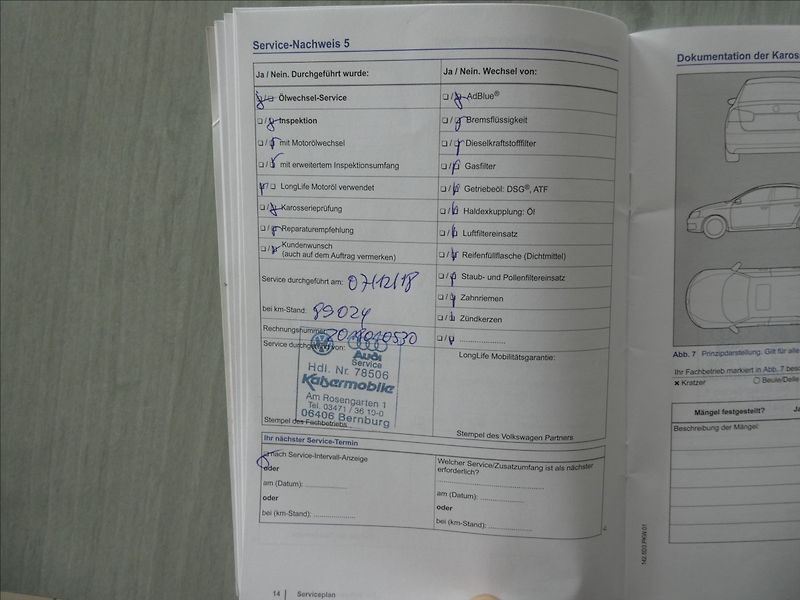 Service-Nachweis 5
Ja / Nein. Durchgeführt wurde:
❑ / ❑ Ölwechsel-Service
❑ / ❑ Inspektion
❑ / ❑ mit Motorölwechsel
❑ / ❑ mit erweitertem Inspektionsumfang
❑ / ❑ LongLife Motoröl verwendet
❑ / ❑ Karosserieprüfung
❑ / ❑ Reparaturempfehlung
❑ / ❑ Kundenwunsch
(auch auf dem Auftrag vermerken)
Service durchgeführt am: 07/12/18
bei km-Stand: 99024
Rechnungsnummer:
Service durchgeführt von:
Audi
Service
Hdl. Nr. 78506
Kabermobile
Am Rosengarten 1
Tel. 03471 / 36 19-0
06406 Bernburg
Stempel des Fachbetriebs
Ja / Nein. Wechsel von:
❑ / ❑ AdBlue®
❑ / ❑ Bremsflüssigkeit
❑ / ❑ Dieselkraftstofffilter
❑ / ❑ Gasfilter
❑ / ❑ Getriebeöl: DSG®, ATF
❑ / ❑ Haldexkupplung: Öl
❑ / ❑ Luftfiltereinsatz
❑ / ❑ Reifenfüllflasche (Dichtmittel)
❑ / ❑ Staub- und Pollenfiltereinsatz
❑ / ❑ Zahnriemen
❑ / ❑ Zündkerzen
❑ / ❑ ....................
LongLife Mobilitätsgarantie:
Stempel des Volkswagen Partners
Ihr nächster Service-Termin
nach Service-Intervall-Anzeige
oder
am (Datum): ....................
oder
bei (km-Stand): ....................
Welcher Service/Zusatzumfang ist als nächster
erforderlich?
am (Datum): ....................
oder
bei (km-Stand): ....................
14 | Serviceplan
142.5R3.PKW.01
Dokumentation der Kaross
Abb. 7 Prinzipdarstellung. Gilt für alle
Ihr Fachbetrieb markiert in Abb. 7 besc
✖ Kratzer
Beule/Delle
Mängel festgestellt? Ja
Beschreibung der Mängel: